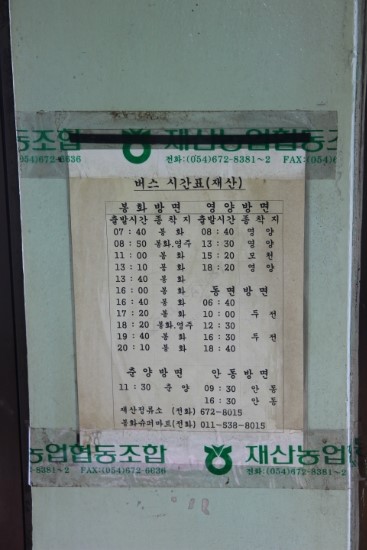 동조합 재산농업협동조
672-6636 전화:(054)672-8381~2 FAX:(054)6
버스 시간표(재산)
봉화방면 영양방면
출발시간 종착지 출발시간 종착지
07 : 40 봉화 08 : 40 영양
08 : 50 봉화.영주 13 : 30 영양
11 : 00 봉화 15 : 20
13 : 10 봉화 18 : 20 영양
13 : 40 봉화
16 : 00 봉화 동면방면
16 : 40 봉화 06 : 40
17 : 20 봉화 10 : 00 두선
18 : 20 봉화.영주 12 : 30
19 : 40 봉화 16 : 30 두선
20 : 10 봉화 18 : 40
춘양방면 안동방면
11 : 30 춘양 09 : 30 안동
16 : 30 안동
재산정류소 (전화) 672-8015
봉화슈퍼마트(전화) 011-538-8015
농업협동조합 재산농업
672-8381~2 FAX:(054)672-6636 전화:(054)672-8381